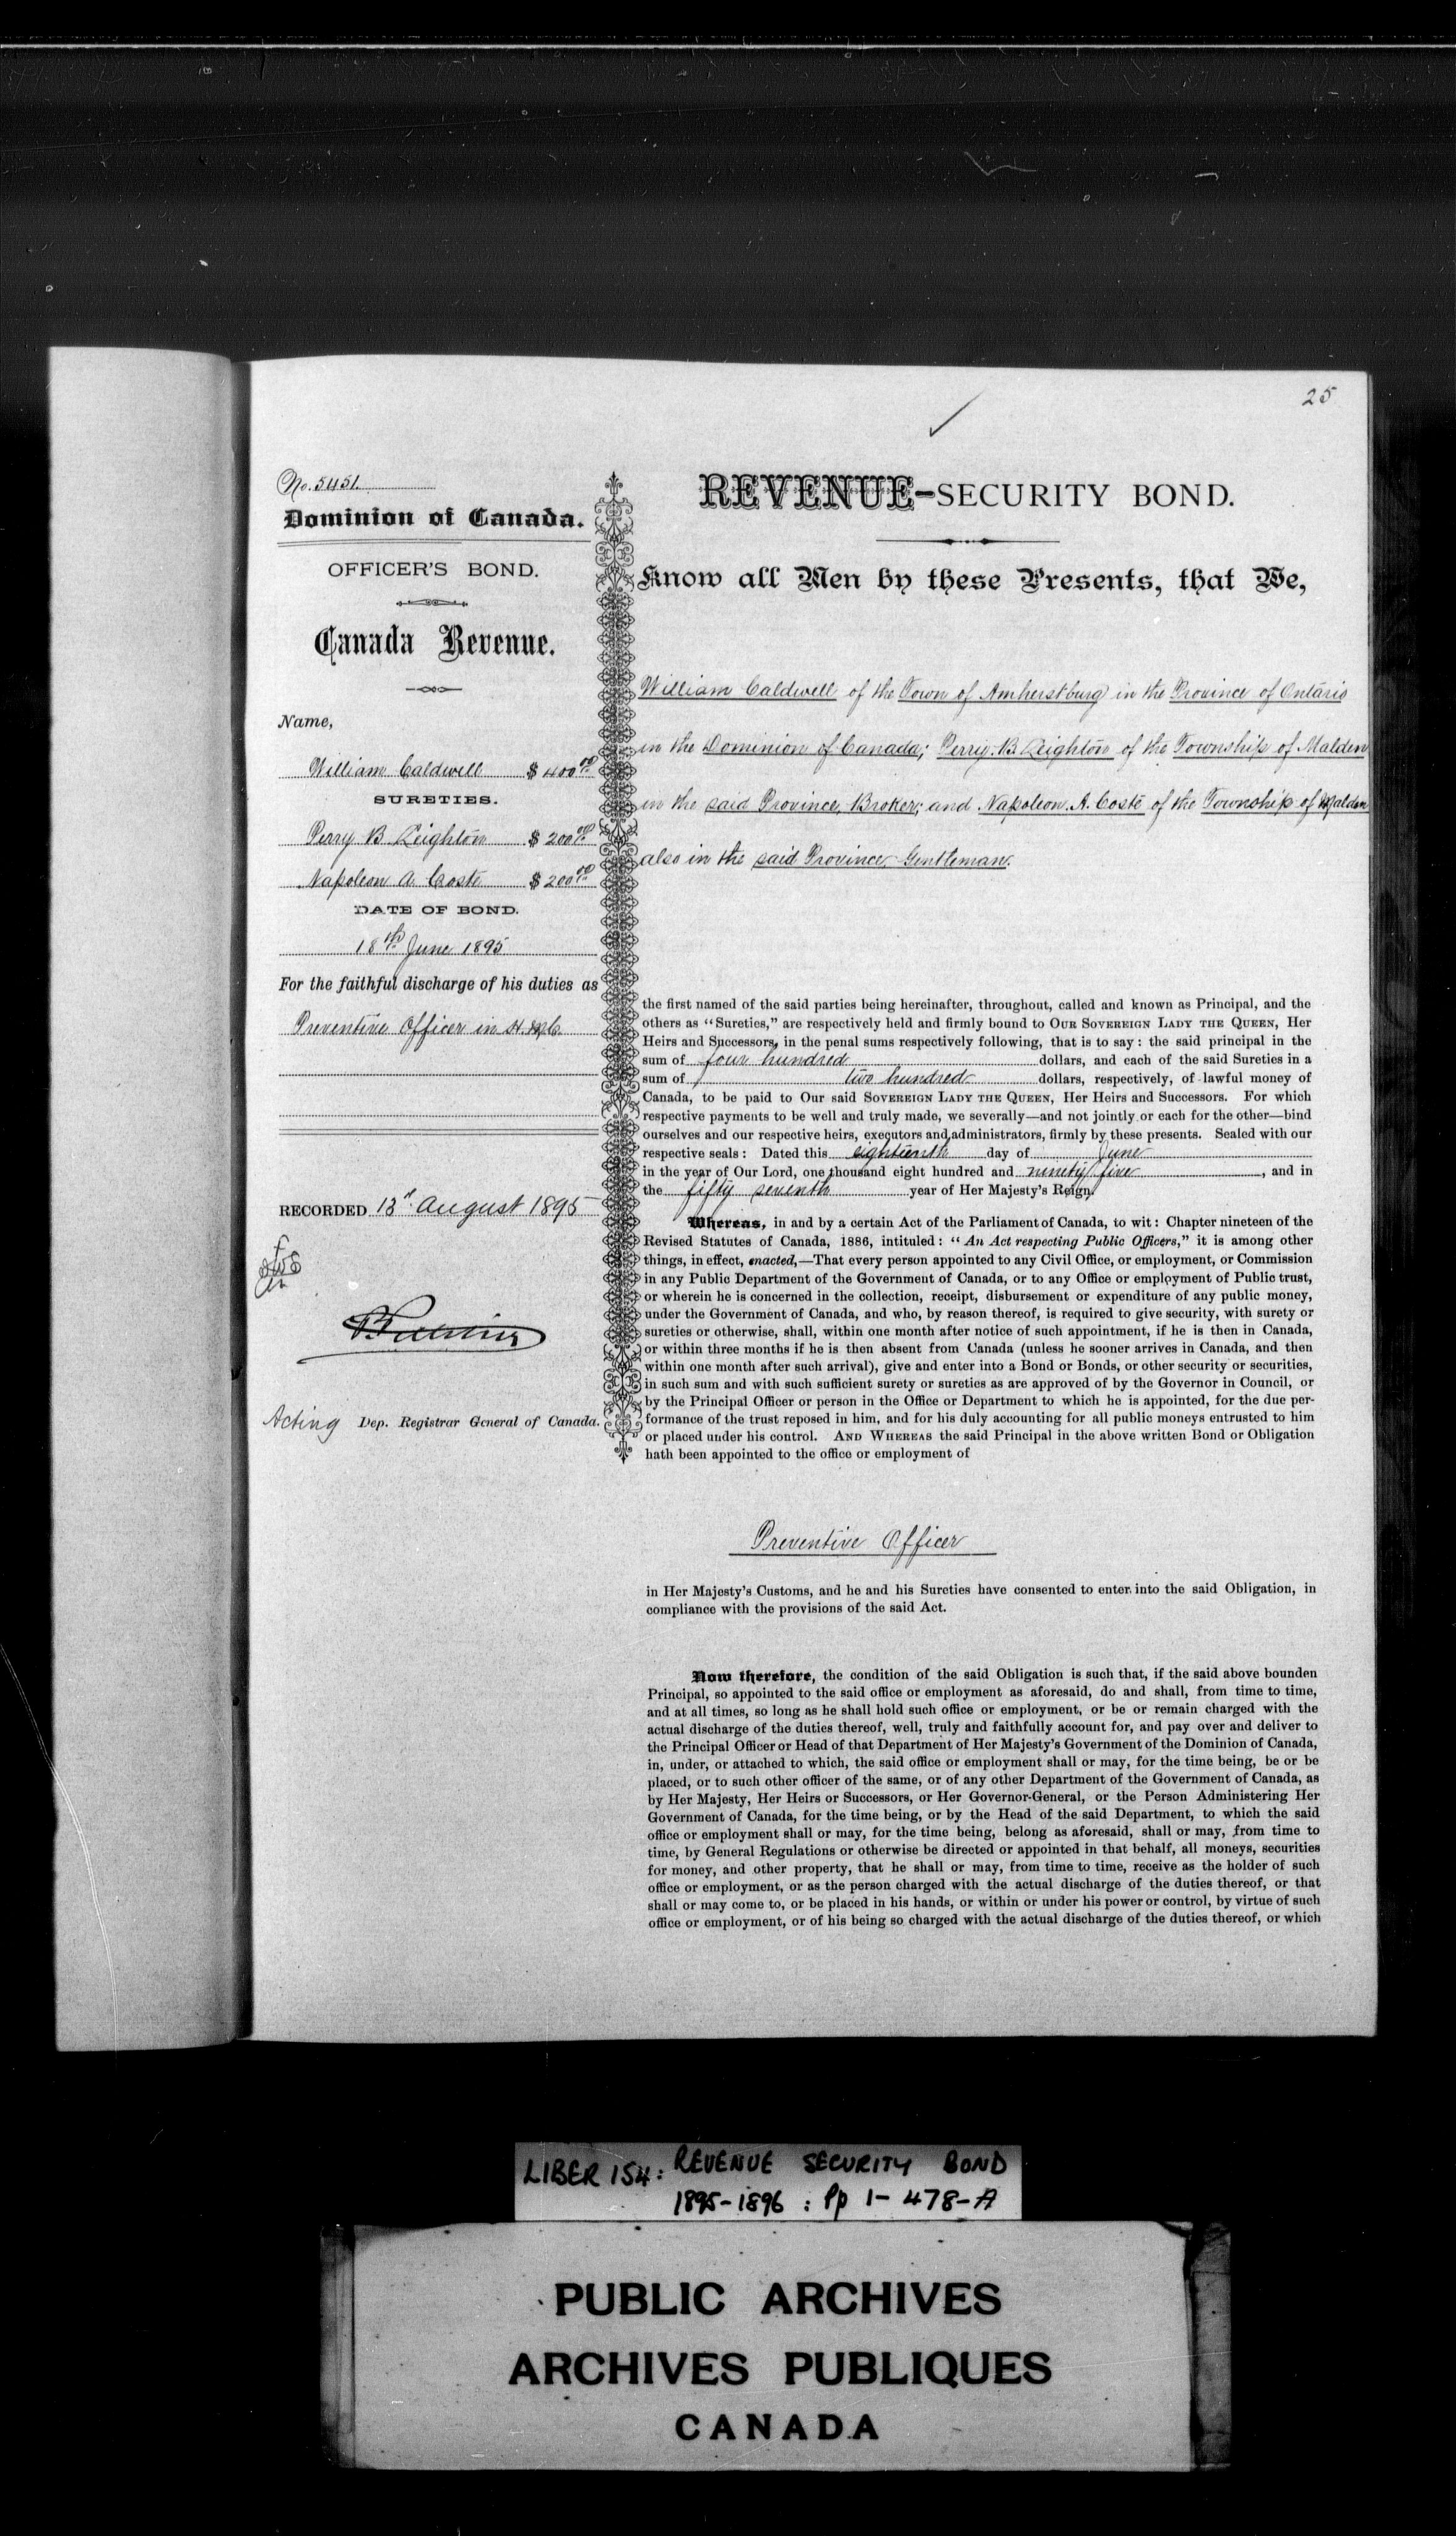 25
No. 5451.
Dominion of Canada.
OFFICER'S BOND.
Canada Revenue.
Name,
William Caldwell $400.00
SURETIES.
Perry B Leighton $200.00
Napoleon A Coste $200.00
DATE OF BOND.
18th June 1895
For the faithful discharge of his duties as
Preventive Officer in H. M. C.
RECORDED 13th August 1895
Acting Dep. Registrar General of Canada.
REVENUE-SECURITY BOND.
Know all Men by these Presents, that We,
William Caldwell of the Town of Amherstburg in the Province of Ontario
in the Dominion of Canada; Perry. B. Leighton of the Township of Malden
in the said Province, Broker; and Napoleon. A. Coste of the Township of Malden
also in the said Province, Gentleman.
the first named of the said parties being hereinafter, throughout, called and known as Principal, and the
others as "Sureties," are respectively held and firmly bound to OUR SOVEREIGN LADY THE QUEEN, Her
Heirs and Successors, in the penal sums respectively following, that is to say: the said principal in the
sum of four hundred dollars, and each of the said Sureties in a
sum of two hundred dollars, respectively, of lawful money of
Canada, to be paid to Our said SOVEREIGN LADY THE QUEEN, Her Heirs and Successors. For which
respective payments to be well and truly made, we severally—and not jointly or each for the other—bind
ourselves and our respective heirs, executors and administrators, firmly by these presents. Sealed with our
respective seals: Dated this eighteenth day of June
in the year of Our Lord, one thousand eight hundred and ninety five, and in
the fifty seventh year of Her Majesty's Reign.
Whereas, in and by a certain Act of the Parliament of Canada, to wit: Chapter nineteen of the
Revised Statutes of Canada, 1886, intituled: "An Act respecting Public Officers," it is among other
things, in effect, enacted,—That every person appointed to any Civil Office, or employment, or Commission
in any Public Department of the Government of Canada, or to any Office or employment of Public trust,
or wherein he is concerned in the collection, receipt, disbursement or expenditure of any public money,
under the Government of Canada, and who, by reason thereof, is required to give security, with surety or
sureties or otherwise, shall, within one month after notice of such appointment, if he is then in Canada,
or within three months if he is then absent from Canada (unless he sooner arrives in Canada, and then
within one month after such arrival), give and enter into a Bond or Bonds, or other security or securities,
in such sum and with such sufficient surety or sureties as are approved of by the Governor in Council, or
by the Principal Officer or person in the Office or Department to which he is appointed, for the due per-
formance of the trust reposed in him, and for his duly accounting for all public moneys entrusted to him
or placed under his control. AND WHEREAS the said Principal in the above written Bond or Obligation
hath been appointed to the office or employment of
Preventive Officer
in Her Majesty's Customs, and he and his Sureties have consented to enter into the said Obligation, in
compliance with the provisions of the said Act.
Now therefore, the condition of the said Obligation is such that, if the said above bounden
Principal, so appointed to the said office or employment as aforesaid, do and shall, from time to time,
and at all times, so long as he shall hold such office or employment, or be or remain charged with the
actual discharge of the duties thereof, well, truly and faithfully account for, and pay over and deliver to
the Principal Officer or Head of that Department of Her Majesty's Government of the Dominion of Canada,
in, under, or attached to which, the said office or employment shall or may, for the time being, be or be
placed, or to such other officer of the same, or of any other Department of the Government of Canada, as
by Her Majesty, Her Heirs or Successors, or Her Governor-General, or the Person Administering Her
Government of Canada, for the time being, or by the Head of the said Department, to which the said
office or employment shall or may, for the time being, belong as aforesaid, shall or may, from time to
time, by General Regulations or otherwise be directed or appointed in that behalf, all moneys, securities
for money, and other property, that he shall or may, from time to time, receive as the holder of such
office or employment, or as the person charged with the actual discharge of the duties thereof, or that
shall or may come to, or be placed in his hands, or within or under his power or control, by virtue of such
office or employment, or of his being so charged with the actual discharge of the duties thereof, or which
LIBER 154: REVENUE SECURITY BOND
1895-1896 : Pp 1-478-A
PUBLIC ARCHIVES
ARCHIVES PUBLIQUES
CANADA